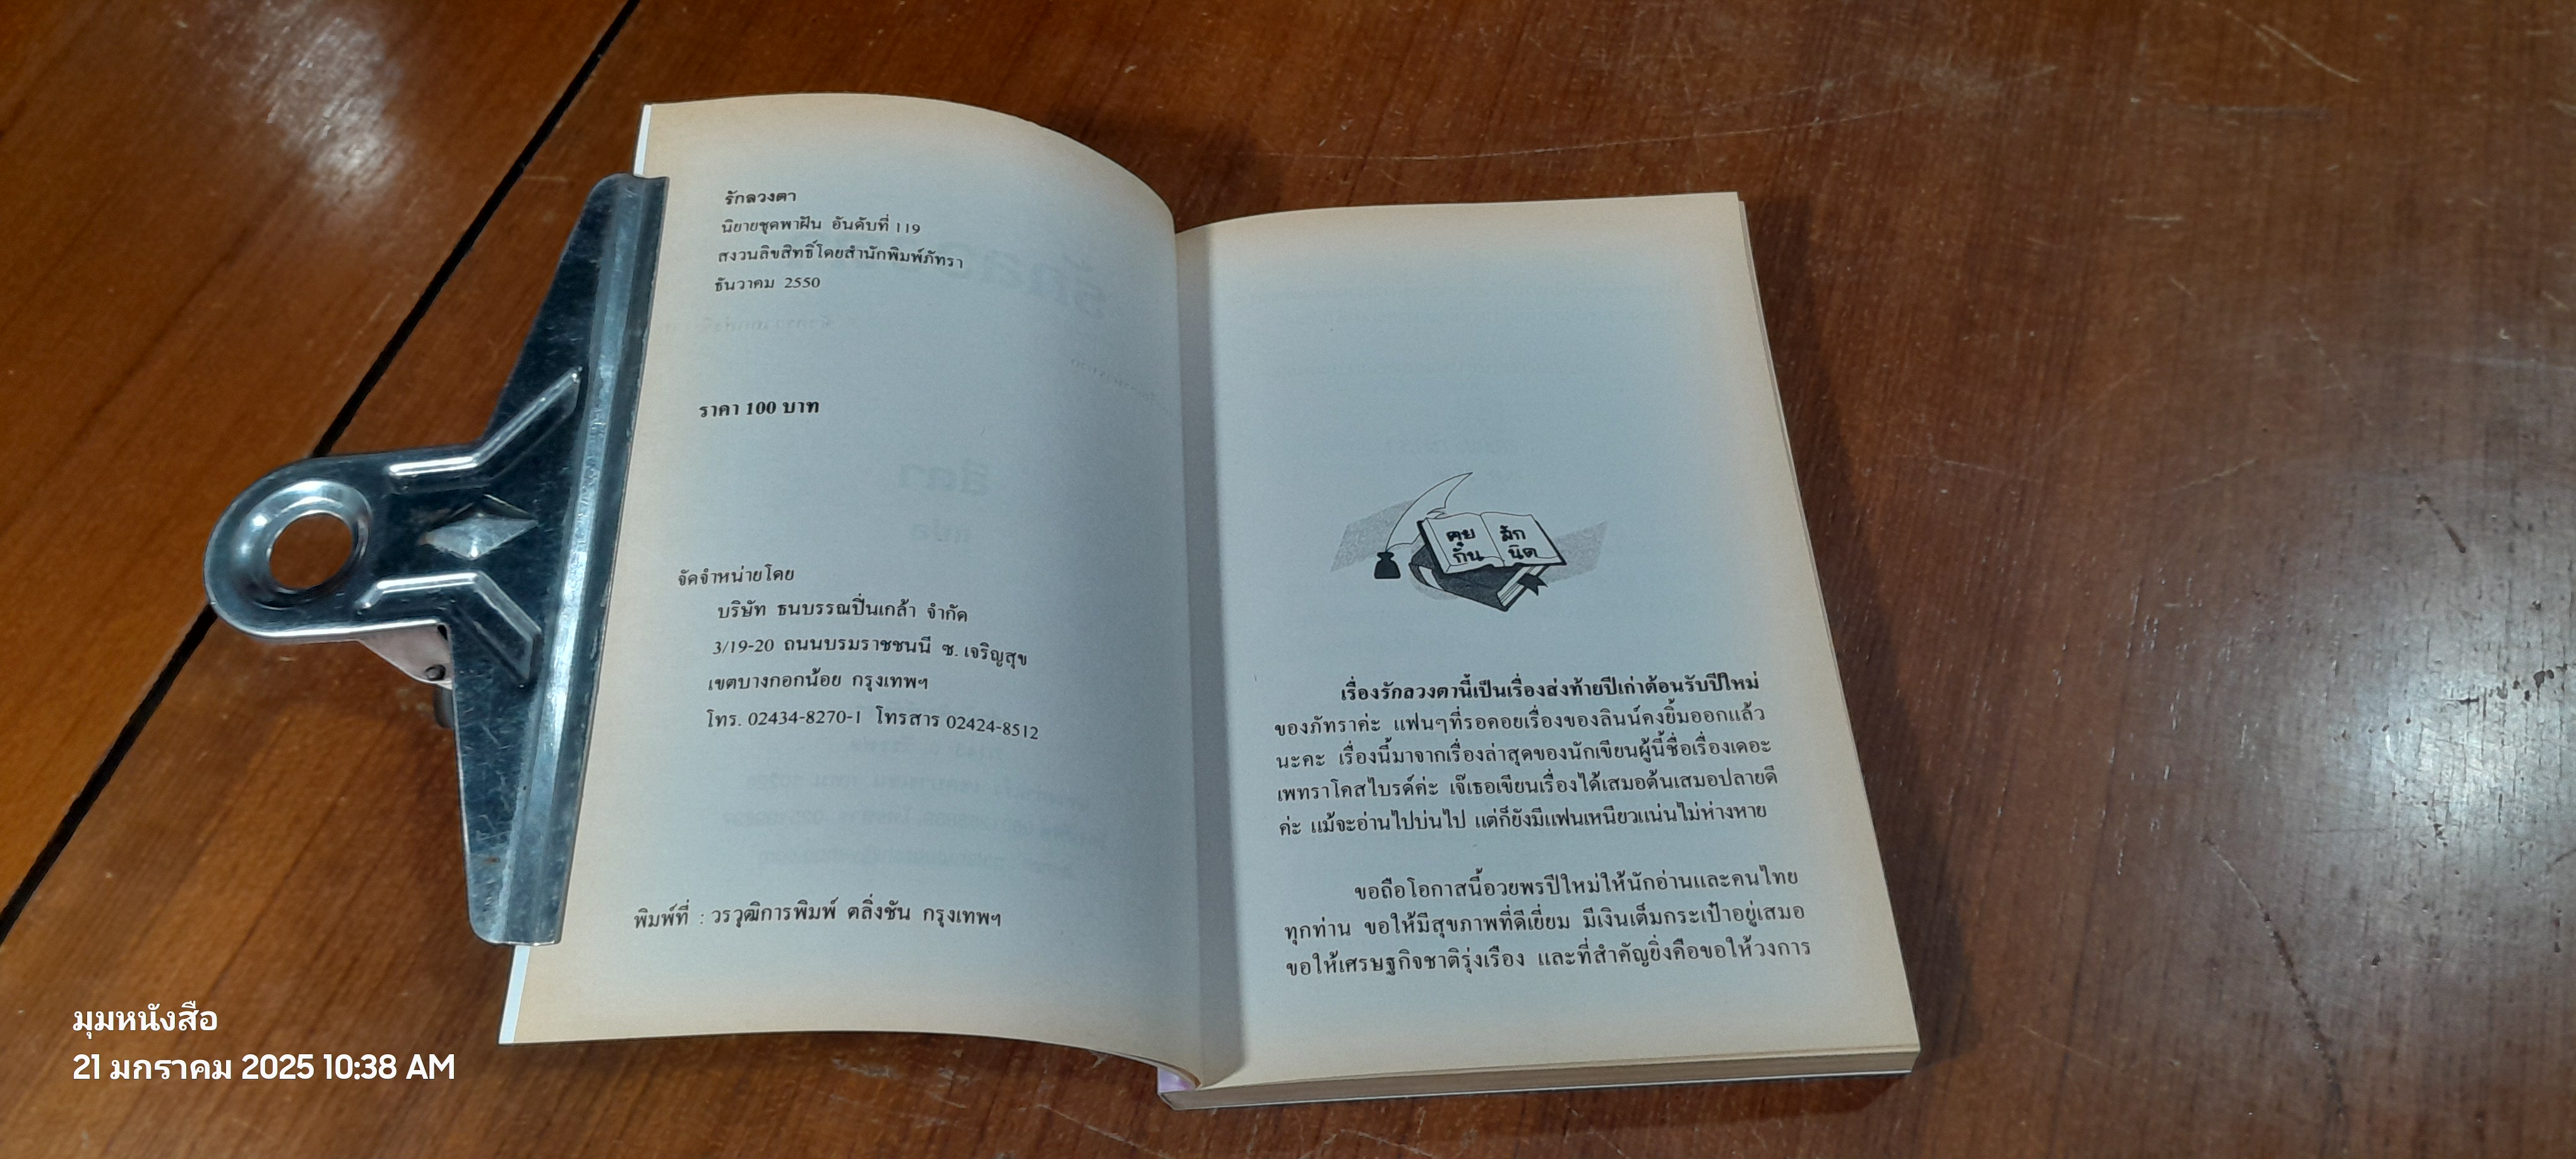 รักลวงตา
นิยายชุดพาฝัน อันดับที่ 119
สงวนลิขสิทธิ์โดยสำนักพิมพ์ภัทรา
ธันวาคม 2550
ราคา 100 บาท
จัดจำหน่ายโดย
บริษัท ธนบรรณปิ่นเกล้า จำกัด
3/19-20 ถนนบรมราชชนนี ซ. เจริญสุข
เขตบางกอกน้อย กรุงเทพฯ
โทร. 02434-8270-1 โทรสาร 02424-8512
พิมพ์ที่ : วรวุฒิการพิมพ์ ตลิ่งชัน กรุงเทพฯ
คุย สัก
กัน นิด
เรื่องรักลวงตานี้เป็นเรื่องส่งท้ายปีเก่าต้อนรับปีใหม่
ของภัทราค่ะ แฟนๆที่รอคอยเรื่องของลินน์คงยิ้มออกแล้ว
นะคะ เรื่องนี้มาจากเรื่องล่าสุดของนักเขียนผู้นี้ชื่อเรื่องเดอะ
เพทราโคสไบรด์ค่ะ เจ๊เธอเขียนเรื่องได้เสมอต้นเสมอปลายดี
ค่ะ แม้จะอ่านไปบ่นไป แต่ก็ยังมีแฟนเหนียวแน่นไม่ห่างหาย
ขอถือโอกาสนี้อวยพรปีใหม่ให้นักอ่านและคนไทย
ทุกท่าน ขอให้มีสุขภาพที่ดีเยี่ยม มีเงินเต็มกระเป๋าอยู่เสมอ
ขอให้เศรษฐกิจชาติรุ่งเรือง และที่สำคัญยิ่งคือขอให้วงการ
มุมหนังสือ
21 มกราคม 2025 10:38 AM